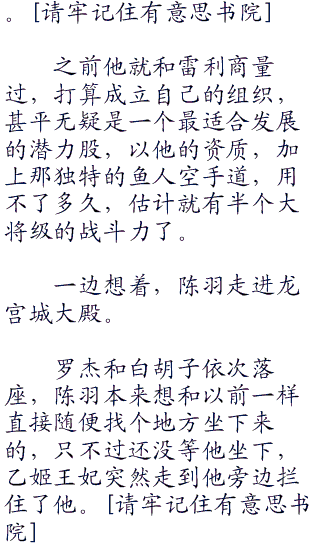 。[请牢记住有意思书院]
之前他就和雷利商量
过，打算成立自己的组织，
甚平无疑是一个最适合发展
的潜力股，以他的资质，加
上那独特的鱼人空手道，用
不了多久，估计就有半个大
将级的战斗力了。
一边想着，陈羽走进龙
宫城大殿。
罗杰和白胡子依次落
座，陈羽本来想和以前一样
直接随便找个地方坐下来
的，只不过还没等他坐下，
乙姬王妃突然走到他旁边拦
住了他。[请牢记住有意思书
院]